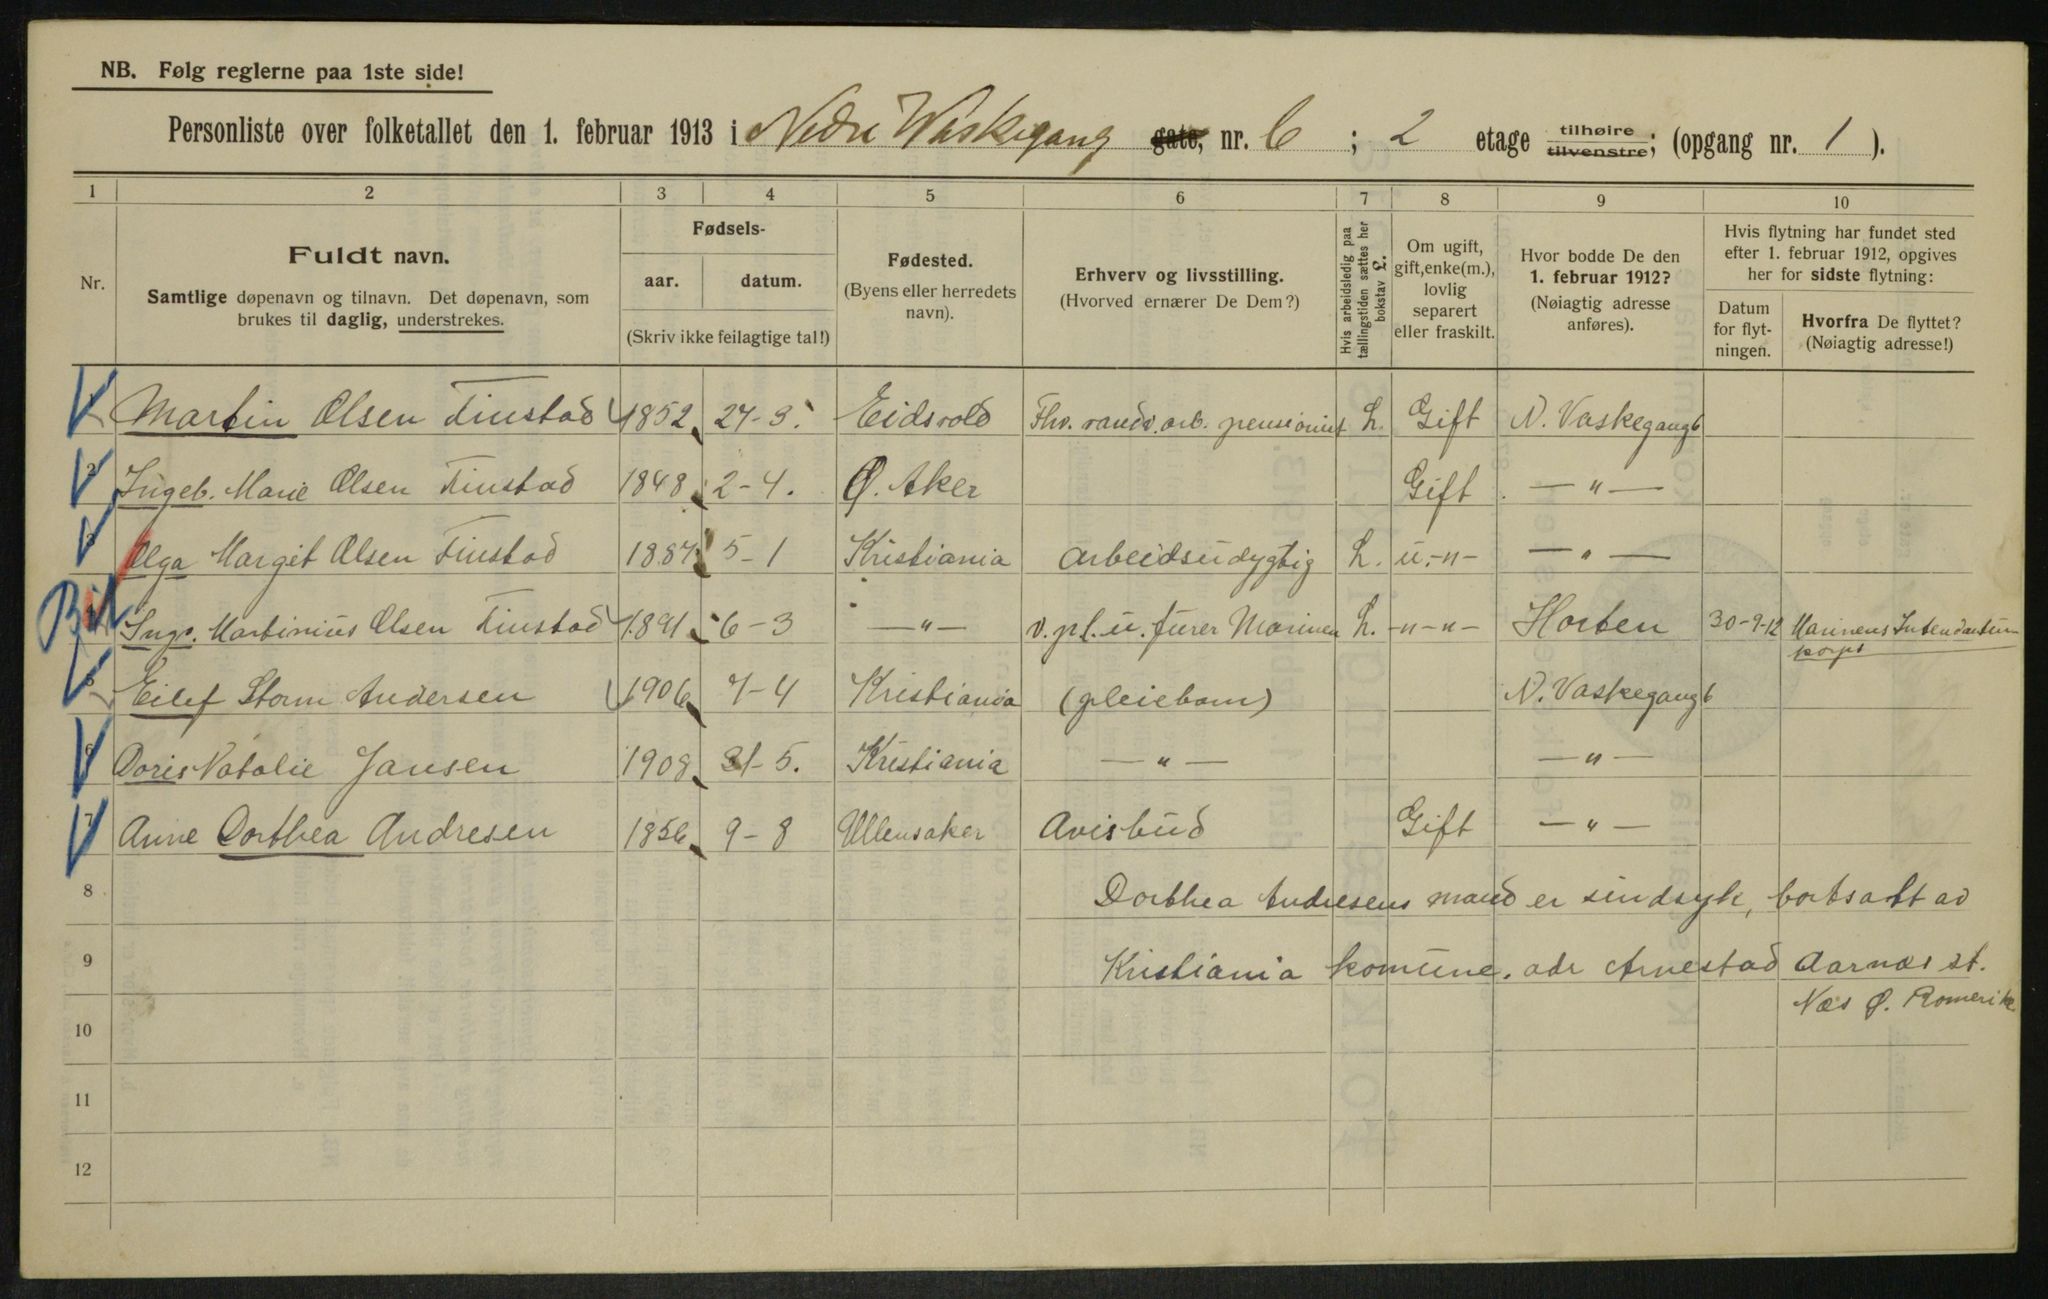 NB. Følg reglerne paa 1ste side!
Personliste over folketallet den 1. februar 1913 i Nedre Waskegang gate, nr. 6 ; 2 etage tilhøire tilvenstre; (opgang nr. 1 ).
1 2 3 4 5 6 7 8 9 10
Nr.
Fuldt navn.
Samtlige døpenavn og tilnavn. Det døpenavn, som
brukes til daglig, understrekes.
Fødsels-
aar. datum.
(Skriv ikke feilagtige tal!)
Fødested.
(Byens eller herredets
navn).
Erhverv og livsstilling.
(Hvorved ernærer De Dem?)
Hvis arbeidsledig paa
tællingstiden sættes her
bokstav £.
Om ugift,
gift, enke(m.),
lovlig
separert
eller fraskilt.
Hvor bodde De den
1. februar 1912?
(Nøiagtig adresse
anføres).
Hvis flytning har fundet sted
efter 1. februar 1912, opgives
her for sidste flytning:
Datum
for flyt-
ningen.
Hvorfra De flyttet?
(Nøiagtig adresse!)
Martin Olsen Finstad 1852 27-3. Eidsvold Fhv. arb. pensionist L. Gift N. Vaskegang 6
2 Ingeb. Marie Olsen Finstad 1848 2-4. Ø. Aker Gift. —"—
3 Olga Margit Olsen Finstad 1887 5-1 Kristiania arbeidsudygtig L. u.-"- —"—
Ingv. Martinius Olsen Finstad 1891 6-3 —"— v.pl.u. furer Marinen L. -"-"- Horten 30-9-12 Marinens Intendantur
korps
5 Eilef Storm Andersen 1906 7-4 Kristiania (pleiebarn) N. Vaskegang 6
6 Doris Natalie Jansen 1908 31-5. Kristiania —"— —"—
7 Anne Dorthea Andresen 1856 9-8 Ullensaker Avisbud Gift —"—
8 Dorthea Andresens mand er sindsyk, bortsatt av
9 Kristiania komune. adr Arnestad Aarnæs st.
10 Næs Ø. Romerike
11
12